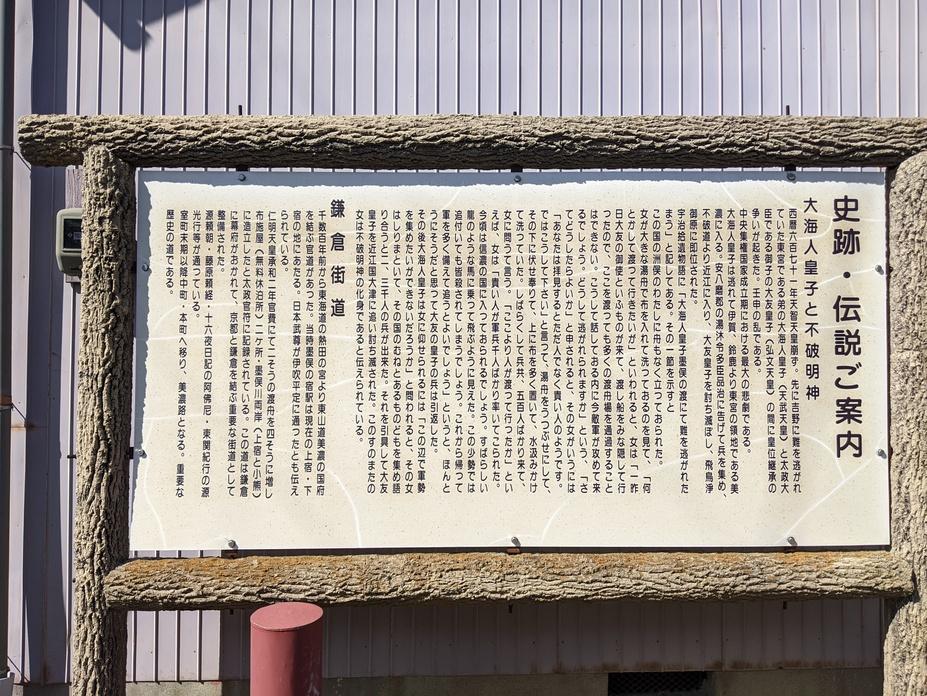 史跡・伝説ご案内
大海人皇子と不破明神
西暦六百七十一年天智天皇崩御。先に吉野に難を逃がれ
ていた東宮である弟の大海人皇子（天武天皇）と太政大
臣である御子の大友皇子（弘文天皇）の間に皇位継承の
争いが起きた。壬申の乱である。
中央集権国家成立期における最大の悲劇である。
大海人皇子は逃れて伊賀、鈴鹿より東宮の領地である美
濃に入る。安八磨郡の湯沐令多臣品治に告げて兵を集め、
不破道より近江に入り、大友皇子を討ち滅ぼし、飛鳥浄
御原に即位された。
宇治拾遺物語に「大海人皇子墨俣の渡にて難を逃がれた
まう」と記してある。その一節を示すと
この国の洲俣のわたしに舟もなく立つておられた。
女が大きな湯舟で布を入れて洗つておるのを見て、「何
とかして渡つて行きたいが」といわれると、女は「一昨
日大友の御使というものが来て、渡し船をみな隠して行
つたので、ここを渡つても多くの渡舟場を通過すること
はできない。こうして話しておる内に今敵軍が攻めて来
るでしょう。どうして逃がれられますか」という、「さ
てどうしたらよいか」と申されると、その女がいうには
「あなたは拝見するとただ人でなく貴い人のようです。
ではこうして下さい」と言つて、湯舟をうつぶせにして、
その下に伏せ奉りて、上に布を多く置いて、水汲みかけ
て洗つていた。しばらくして兵共四、五百人ばかり来て、
女に問うて言う。「ここより人が渡つて行つたか」とい
えば、女は「貴い人が軍兵千人ばかり率いてこられた。
今頃は信濃の国に入つておられるでしょう。すばらしい
龍のような馬に乗つて飛ぶように見えた。この少勢では
追付いても皆殺されてしまうでしょう。これから帰つて
軍を多く備えて追うとよいでしょう」というと、ほんと
うにそうだと思つて大友の皇子の兵は引返した。
その後大海人皇子が女に仰せられるには「この辺で軍勢
を集めたいができないだろうか」と問われると、その女
はしりまどいて、その国のむねとあるものどもを集め語
り合うと二、三千人の兵が出来た。それを引具して大友
皇子を近江国大津に追い討ち滅された。このすのまたの
女は不破明神の化身であると伝えられている。
鎌倉街道
千数百年前から東海道の熱田の宮より東山道美濃の国府
を結ぶ官道があつた。当時墨俣の宿駅は現在の上宿・下
宿の地にあたる。日本武尊が伊吹平定に通つたとも伝え
られている。
仁明天皇承和二年官費にて二そうの渡舟を四そうに増し
布施屋（無料休泊所）二ヶ所・墨俣川両岸（上宿と小熊）
に造立したと太政官符に記録されている。この道は鎌倉
に幕府がおかれて、京都と鎌倉を結ぶ重要な街道として
整備された。
源頼朝・藤原頼経・十六夜日記の阿佛尼・東関紀行の源
光行等が通つている。
室町末期以降中町・本町へ移り、美濃路となる。重要な
歴史の道である。